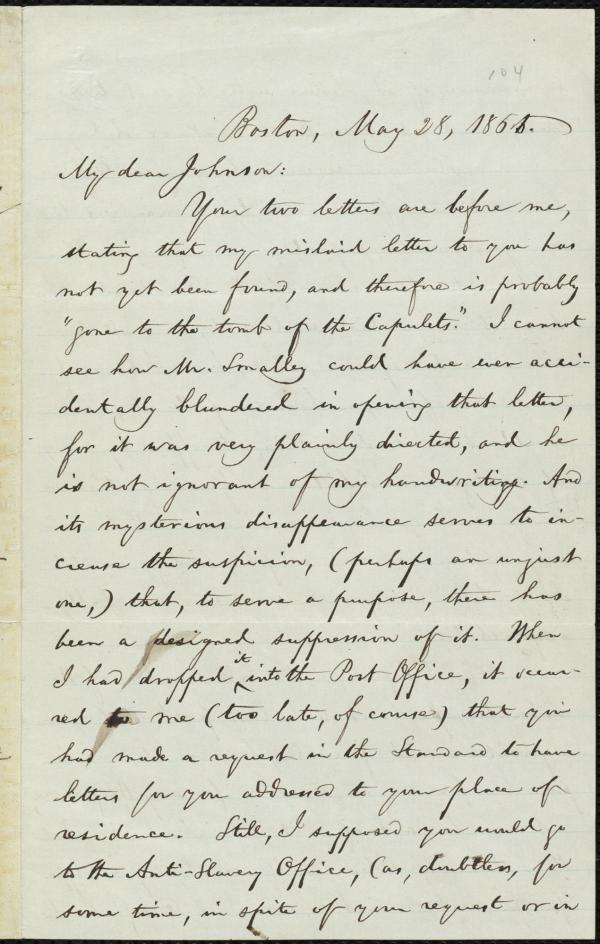 104
Boston, May 28, 1865.
My dear Johnson:
Your two letters are before me,
stating that my mislaid letter to you has
not yet been found, and therefore is probably
"gone to the tomb of the Capulets." I cannot
see how Mr. Smalley could have ever acci-
dentally blundered in opening that letter,
for it was very plainly directed, and he
is not ignorant of my handwriting. And
its mysterious disappearance serves to in-
crease the suspicion, (perhaps an unjust
one,) that, to serve a purpose, there has
been a designed suppression of it. When
I had dropped it into the Post Office, it occur-
red to me (too late, of course) that you
had made a request in the Standard to have
letters for you addressed to your place of
residence. Still, I supposed you would go
to the Anti-Slavery Office, (as, doubtless, for
some time, in spite of your request or in